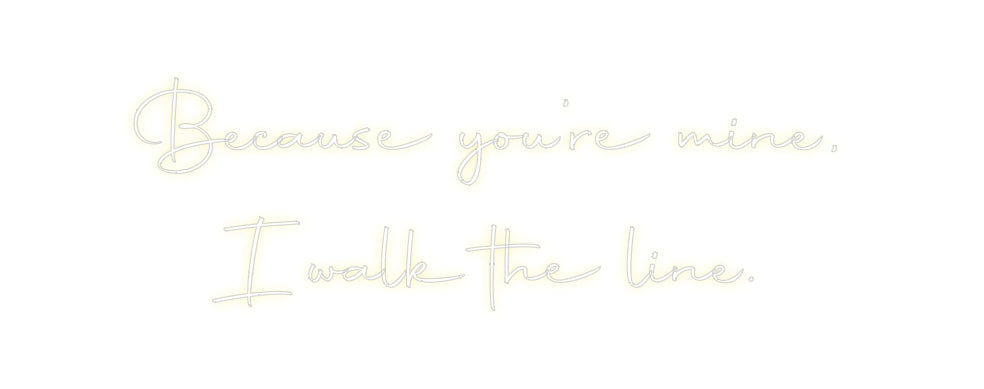 Because you're mine,
I walk the line.